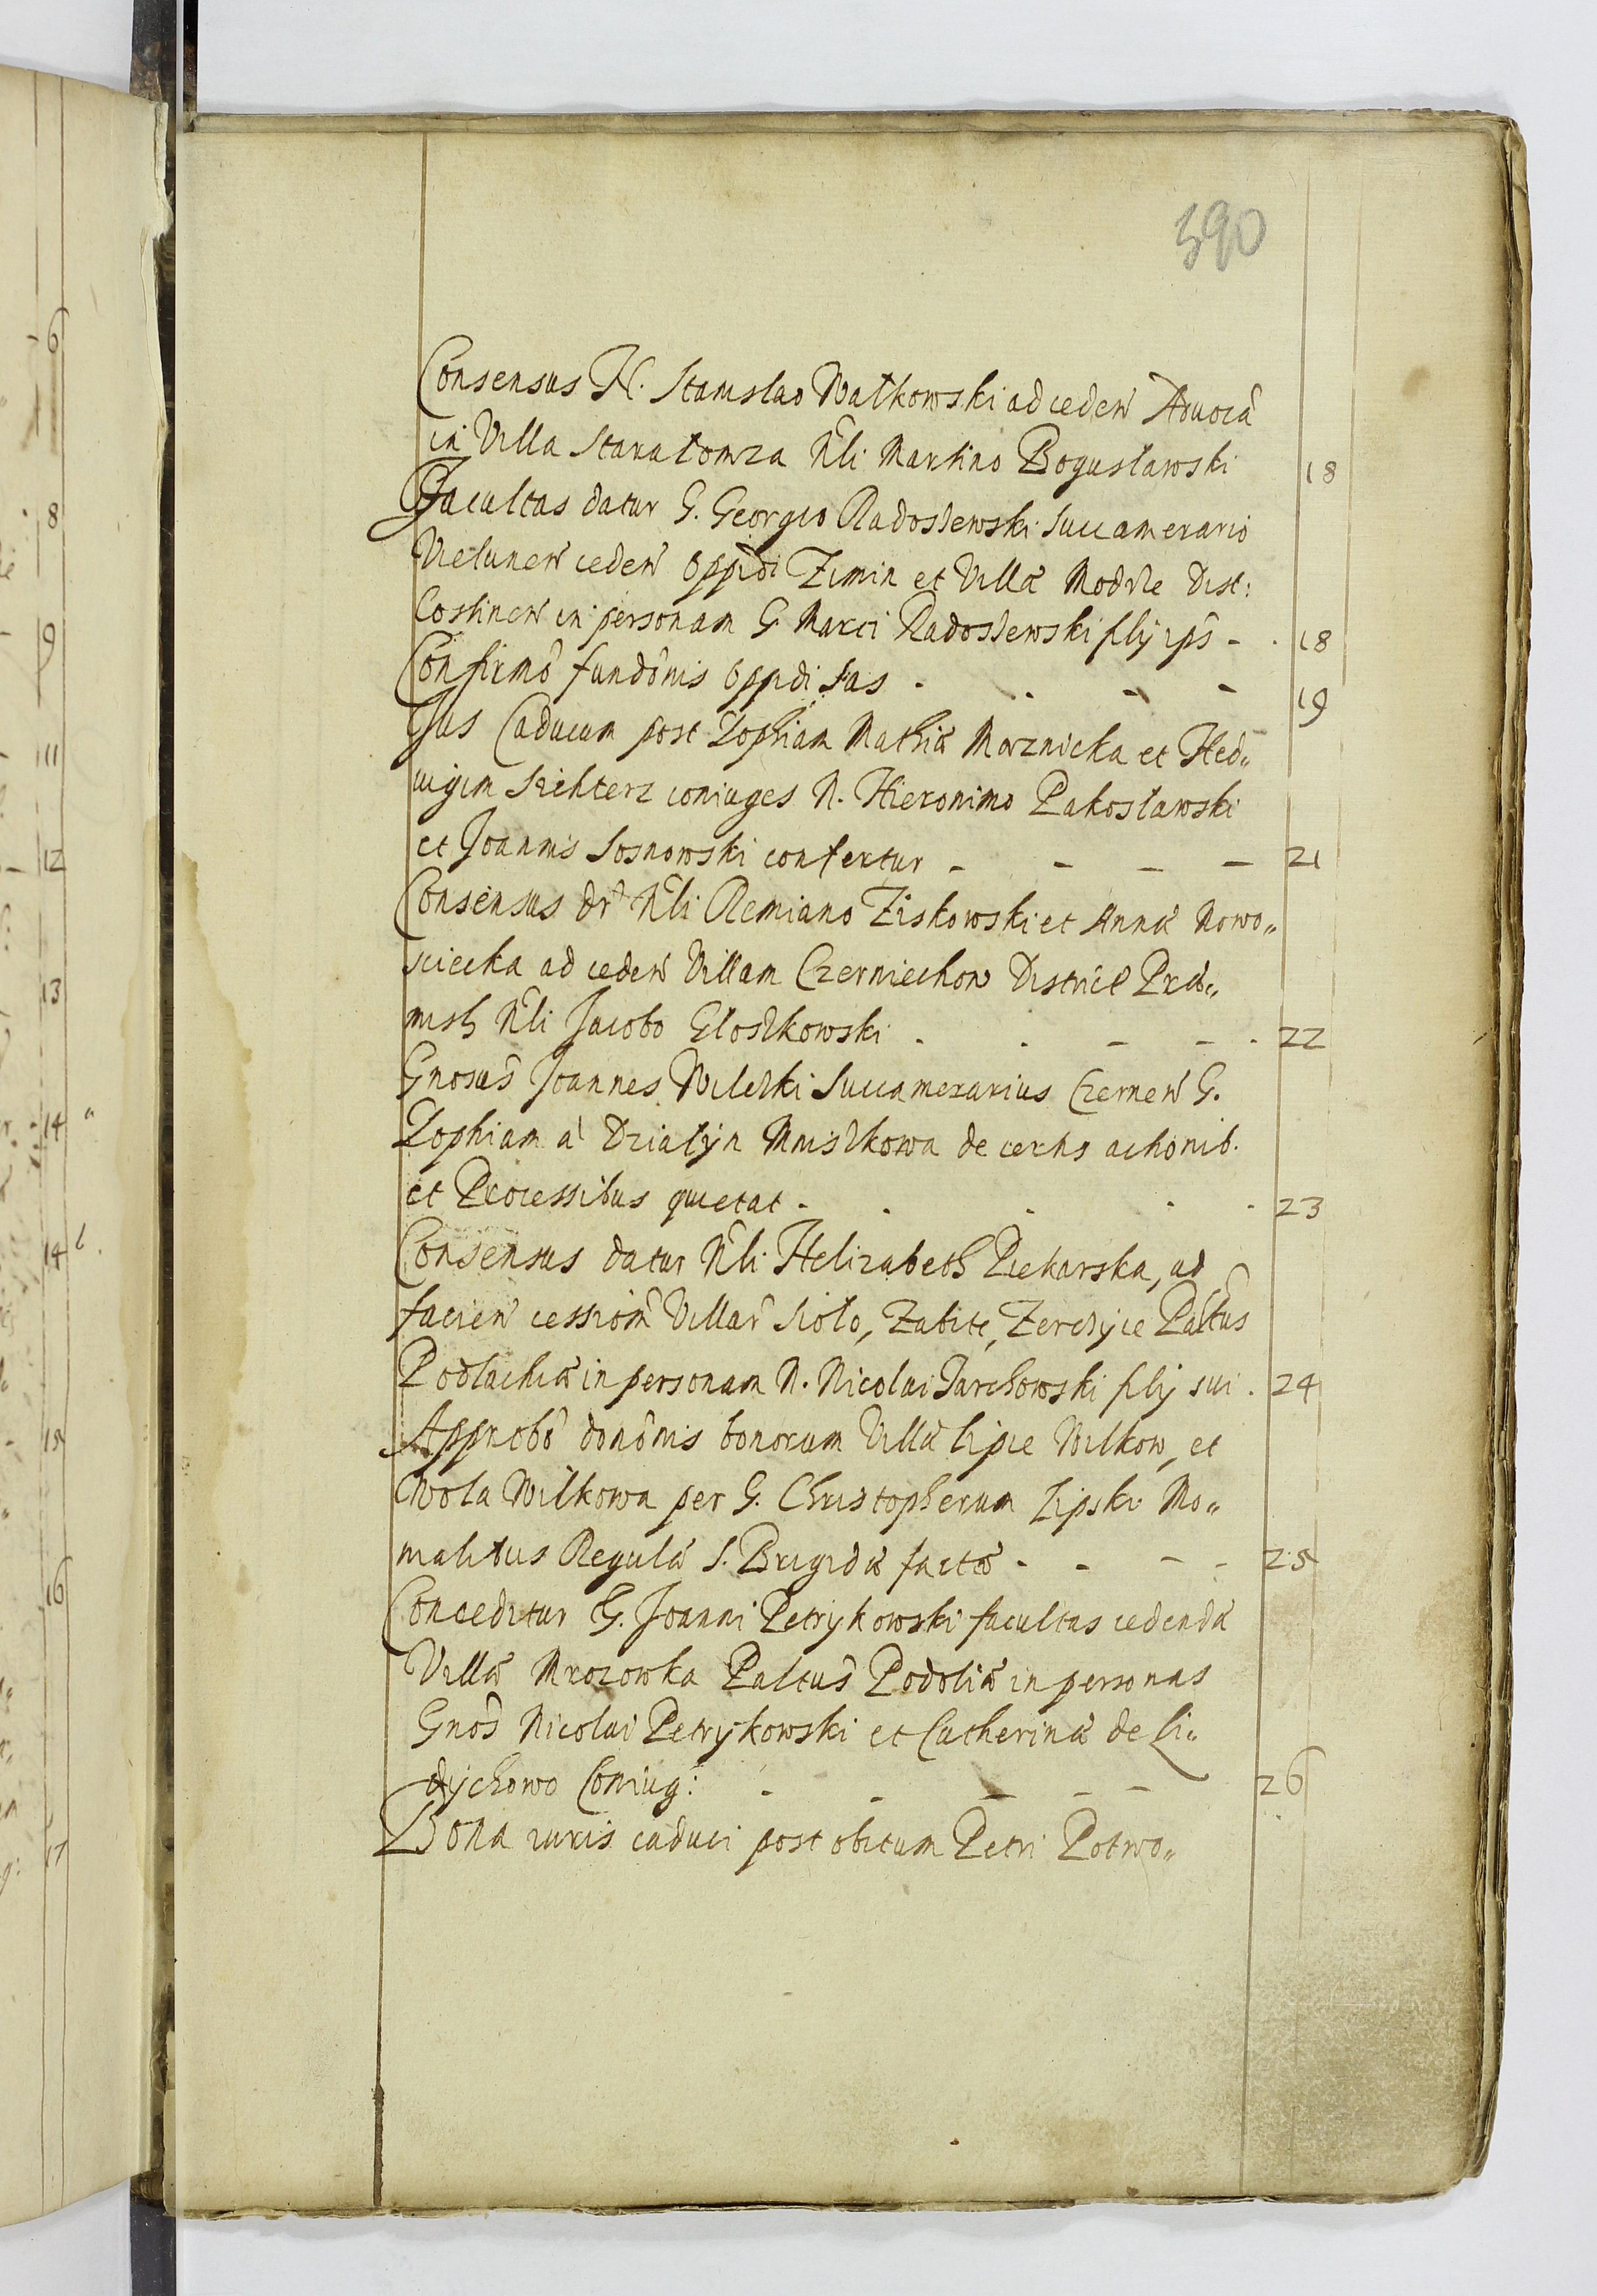 390
Consensus N. Stanislao Walkowski ad ceden Advocã
in Villa Stara Lomza Nli Martino Boguslawski 18
Facultas datur G. Georgio Radoszewski Succamerario
Vielunen ceden oppidi Zimin et Villæ Modzle Dist:
Costinen in personam G. Marci Radoszewski filij ips̃ - . 18
Confirmõ fundõnis oppidi Sas . . - - 19
Jus Caducum post Zophiam Mathiæ Morznicka et Hed„
uigim Szichterz coniuges N. Hieronimo Pakoslawski
et Joannis Sosnowski confertur - - - - 21
Consensus dr̃ Nli Remiano Ziskowski et Annæ Nowo„
sciecka ad ceden Villam Czerniechow District Præ„
mislz Nli Jacobo Gloszkowski . . - - . 22
Gnosus Joannes Wilczki Succamerarius Czernen G.
Zophiam a Dzialyn Mniszkowa de certis actionib.
et Processibus quietat - . . . . 23
Consensus datur Nli Helizabeth Piekarska, ad
facien cessiom̃ Villar̃ Siolo, Zabite, Zerczyce Paltus
Podlachiæ in personam N. Nicolai Jarchowski filij sui . 24
Approbõ donõnis bonorum Villæ Lipie Wilkow, et
Wola Wilkowa per G. Christopherum Lipski Mo„
nialibus Regulæ S. Brigidæ factæ - - - - 25
Conceditur G. Joanni Petrykowski facultas cedendæ
Villæ Mrozowka Paltus Podoliæ in personas
Gnos̃ Nicolai Petrykowski et Catherinæ de Li„
dychowo Coniug: - - - - 26
Bona iuris caduci post obitum Petri Potwo„
6
8
9
11
12
13
14 a
14 b.
15
16
17